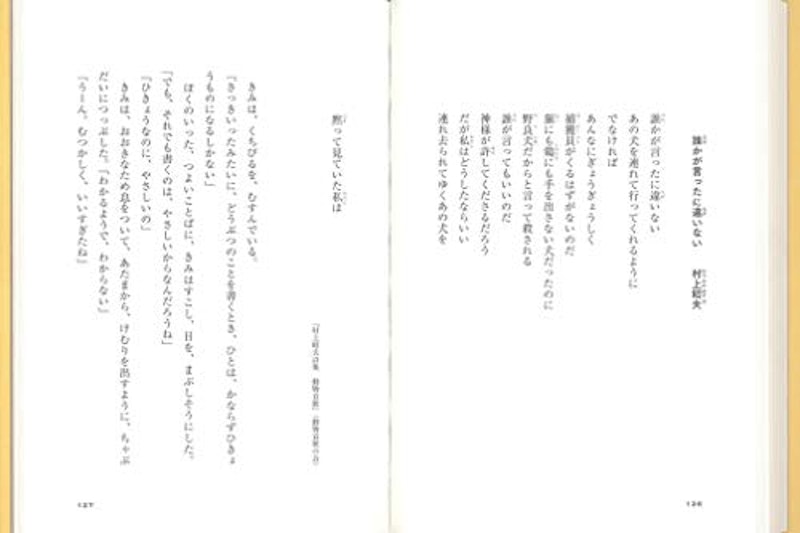 誰かが言ったに違いない　村上昭夫
誰かが言ったに違いない
あの犬を連れて行ってくれるように
でなければ
あんなにぎょうぎょうしく
捕獲員がくるはずがないのだ
猫にも鶏にも手を出さない犬だったのに
野良犬だからと言って殺される
誰が言ってもいいのだ
神様が許してくださるだろう
だが私はどうしたならいい
連れ去られてゆくあの犬を
黙って見ていた私は
きみは、くちびるを、むすんでいる。
「さっきいったみたいに、どうぶつのことを書くとき、ひとは、かならずひきょ
うものになるしかない」
ぼくのいった、つよいことばに、きみはすこし、目を、まぶしそうにした。
「でも、それでも書くのは、やさしいからなんだろうね」
「ひきょうなのに、やさしいの」
きみは、おおきなため息をついて、あたまから、けむりを出すように、ちゃぶ
だいにつっぷした。「わかるようで、わからない」
「うーん。むつかしく、いいすぎたね」